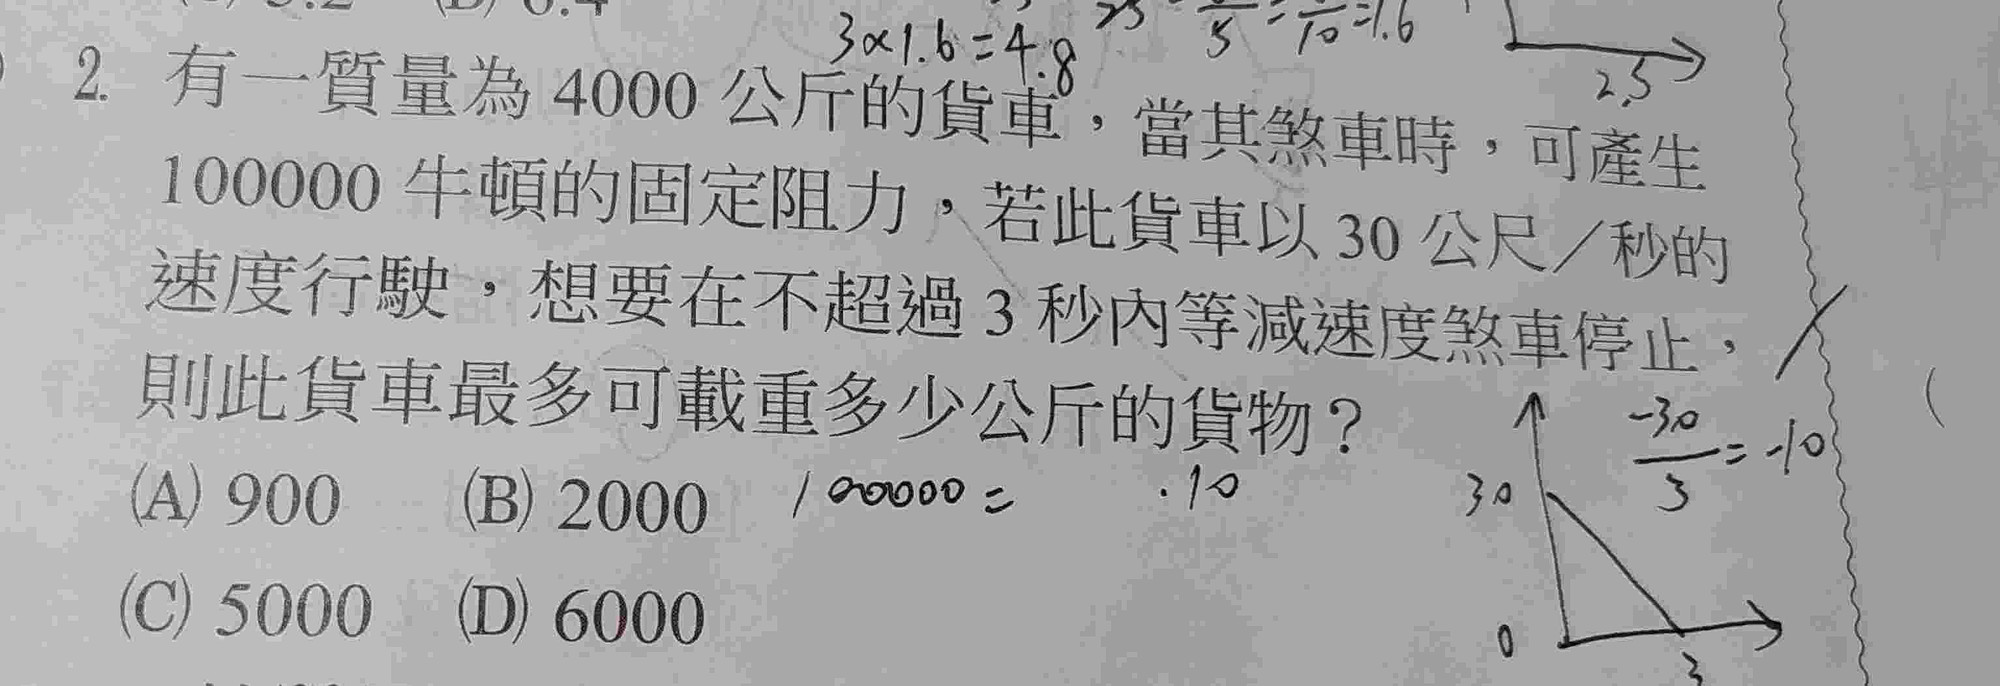 3×1.6=4.8
2.5
2. 有一質量為 4000 公斤的貨車，當其煞車時，可產生
100000 牛頓的固定阻力，若此貨車以 30 公尺／秒的
速度行駛，想要在不超過 3 秒內等減速度煞車停止，
則此貨車最多可載重多少公斤的貨物？
(A) 900 (B) 2000
100000 = .10
(C) 5000 (D) 6000
-30/3 = -10
30
0
3